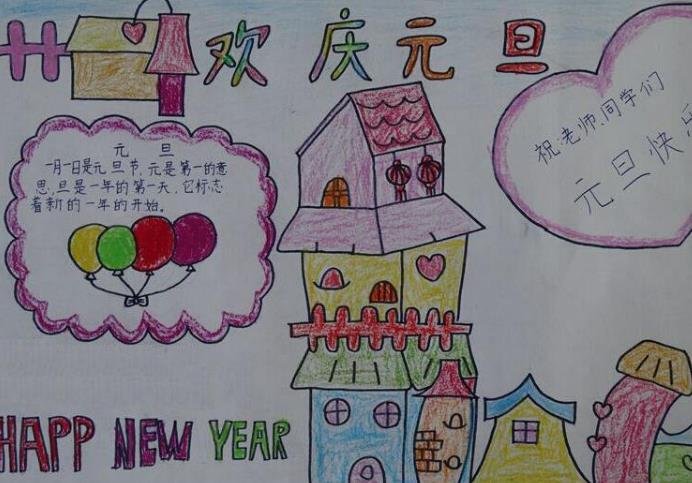 欢庆元旦
元 旦
一月一日是元旦节,元是第一的意
思,旦是一年的第一天,它标志
着新的一年的开始。
祝:老师、同学们
元旦快乐
HAPP NEW YEAR